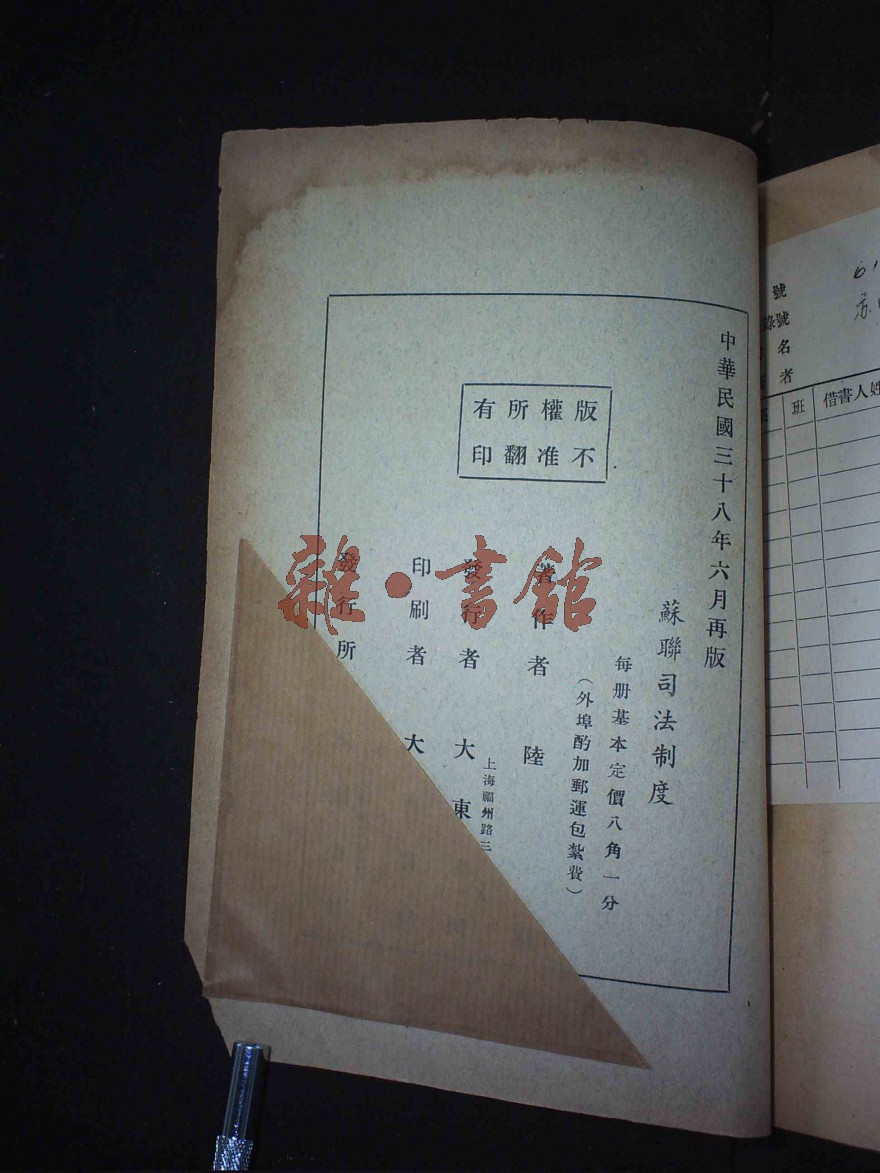 中華民國三十八年六月再版
蘇聯司法制度
每册基本定價八角一分
（外埠酌加郵運包紮費）
版權所有
不准翻印
著作者 陸
上海福州路三
發行者 大東
印刷者 大
發行所
雜·書館
號
錄號
名
者
班
借書人姓